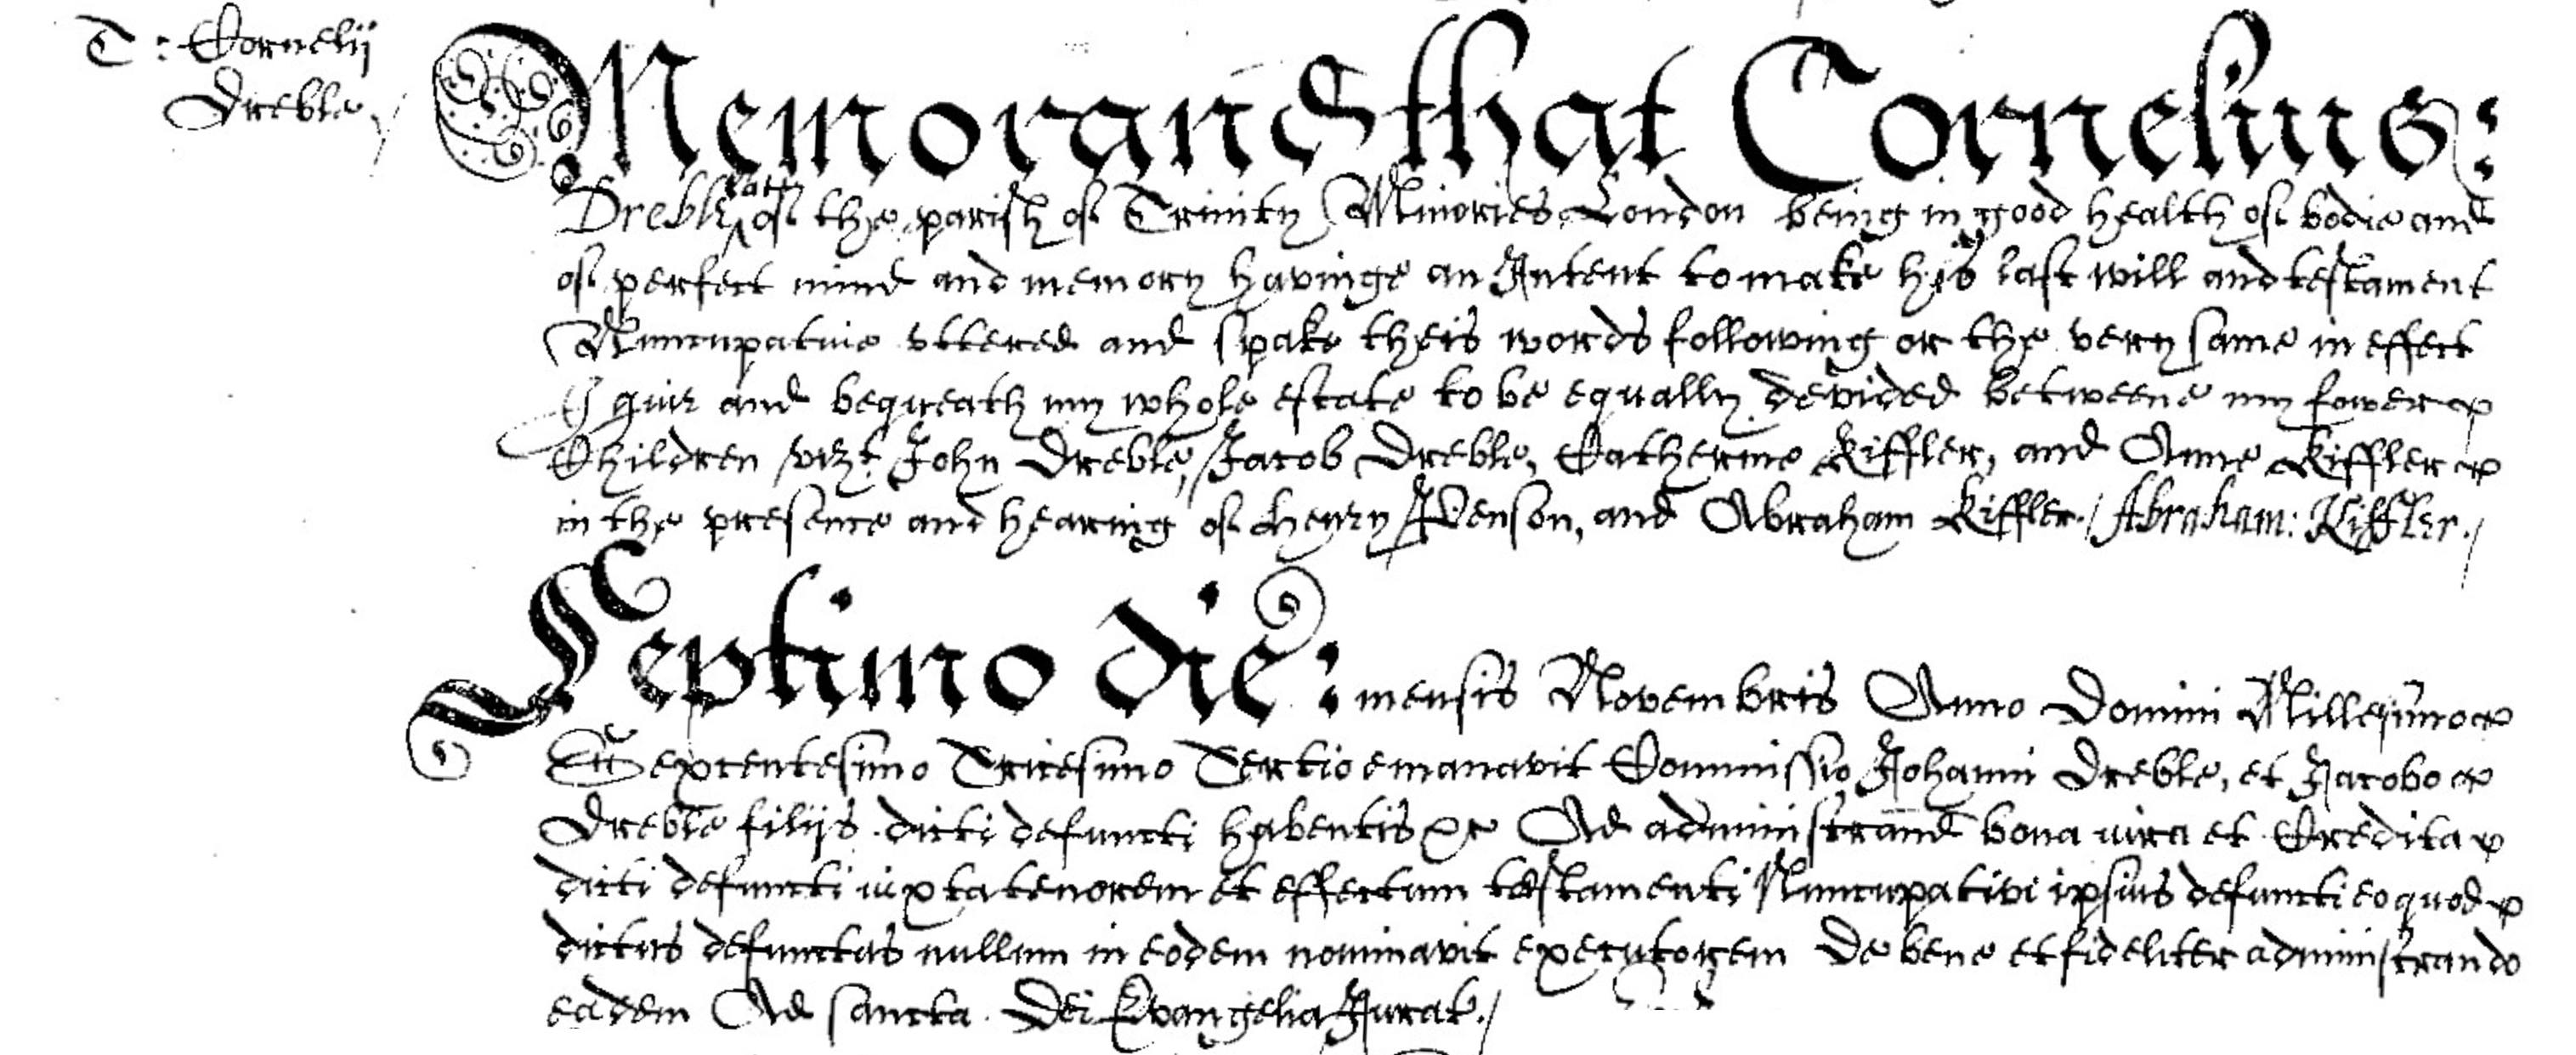 T: Cornelij
Dreble
Memorand that Cornelius:
Dreble late of the parish of Trinity Minories London being in good health of bodie and
of perfect mind and memory havinge an Intent to make his last will and testament
Nuncupative vttered and spake theis words following or the very same in effect
I give and bequeath my whole estate to be equally devided betweene my fower
Children vizt John Dreble, Jacob Dreble, Catherine Kiffler, and Anne Kiffler
in the presence and hearing of Henry Penson, and Abraham Kiffler./ Abraham: Kiffler./
Septimo die: mensis Novembris Anno Domini Millesimo
Sexcentesimo Tricesimo Tertio emanavit Commissio Johanni Dreble, et Jacobo
Dreble filijs dicti defuncti habentis &c Ad administrand bona iura et Credita
dicti defuncti iuxta tenorem et effectum testamenti Nuncupativi ipsius defuncti eo quod
dictus defunctus nullum in eodem nominavit executorem De bene et fideliter administrando
eadem Ad sancta Dei Evangelia Jurat./